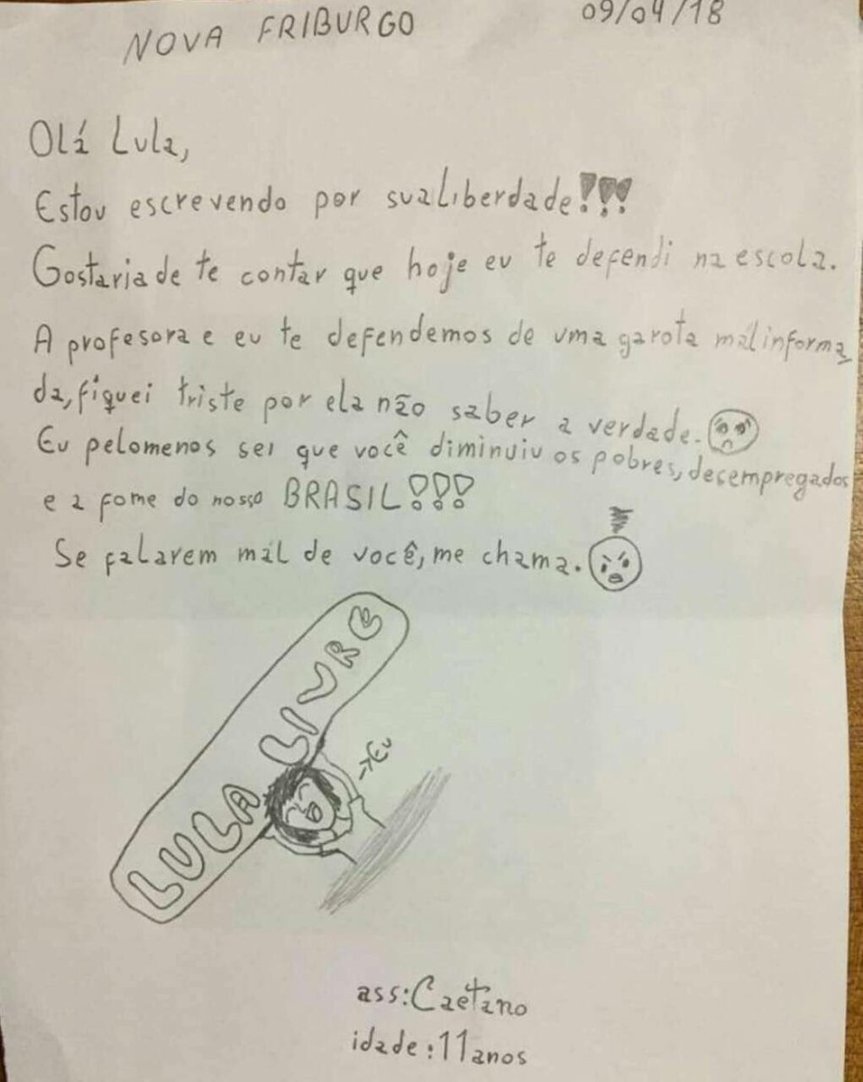 NOVA FRIBURGO 09/04/18
Olá Lula,
Estou escrevendo por sua liberdade!!!!
Gostaria de te contar que hoje eu te defendi na escola.
A profesora e eu te defendemos de uma garota mal informa
da, fiquei triste por ela não saber a verdade.
Eu pelomenos sei que você diminuiu os pobres, desempregados
e a fome do nosso BRASIL!!!
Se falarem mal de você, me chama.
LULA LIVRE
→Eu
ass: Caetano
idade: 11 anos